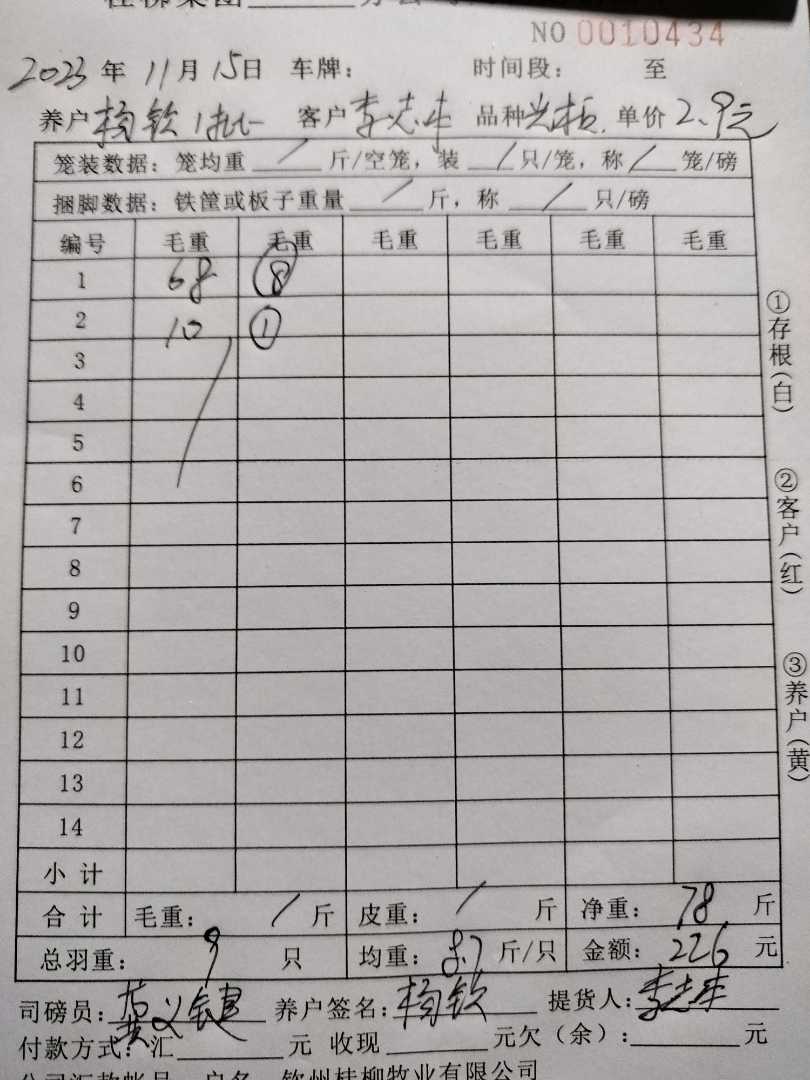 NO 0010434
2023 年 11月 15日 车牌： 时间段： 至
养户 杨钦 1批 客户 李志丰 品种 单价 2.9元
笼装数据：笼均重 / 斤/空笼，装 / 只/笼，称 / 笼/磅
捆脚数据：铁筐或板子重量 / 斤，称 / 只/磅
编号 毛重 毛重 毛重 毛重 毛重 毛重
1 68 ⑧
2 10 ①
3
4
5
6
7
8
9
10
11
12
13
14
小 计
合 计 毛重： / 斤 皮重： / 斤 净重： 78 斤
总羽重： 9 只 均重： 8.7 斤/只 金额： 226 元
司磅员：黄义键 养户签名：杨钦 提货人：李志丰
付款方式：汇 元 收现 元欠（余）： 元
钦州桂柳牧业有限公司
①存根（白）
②客户（红）
③养户（黄）